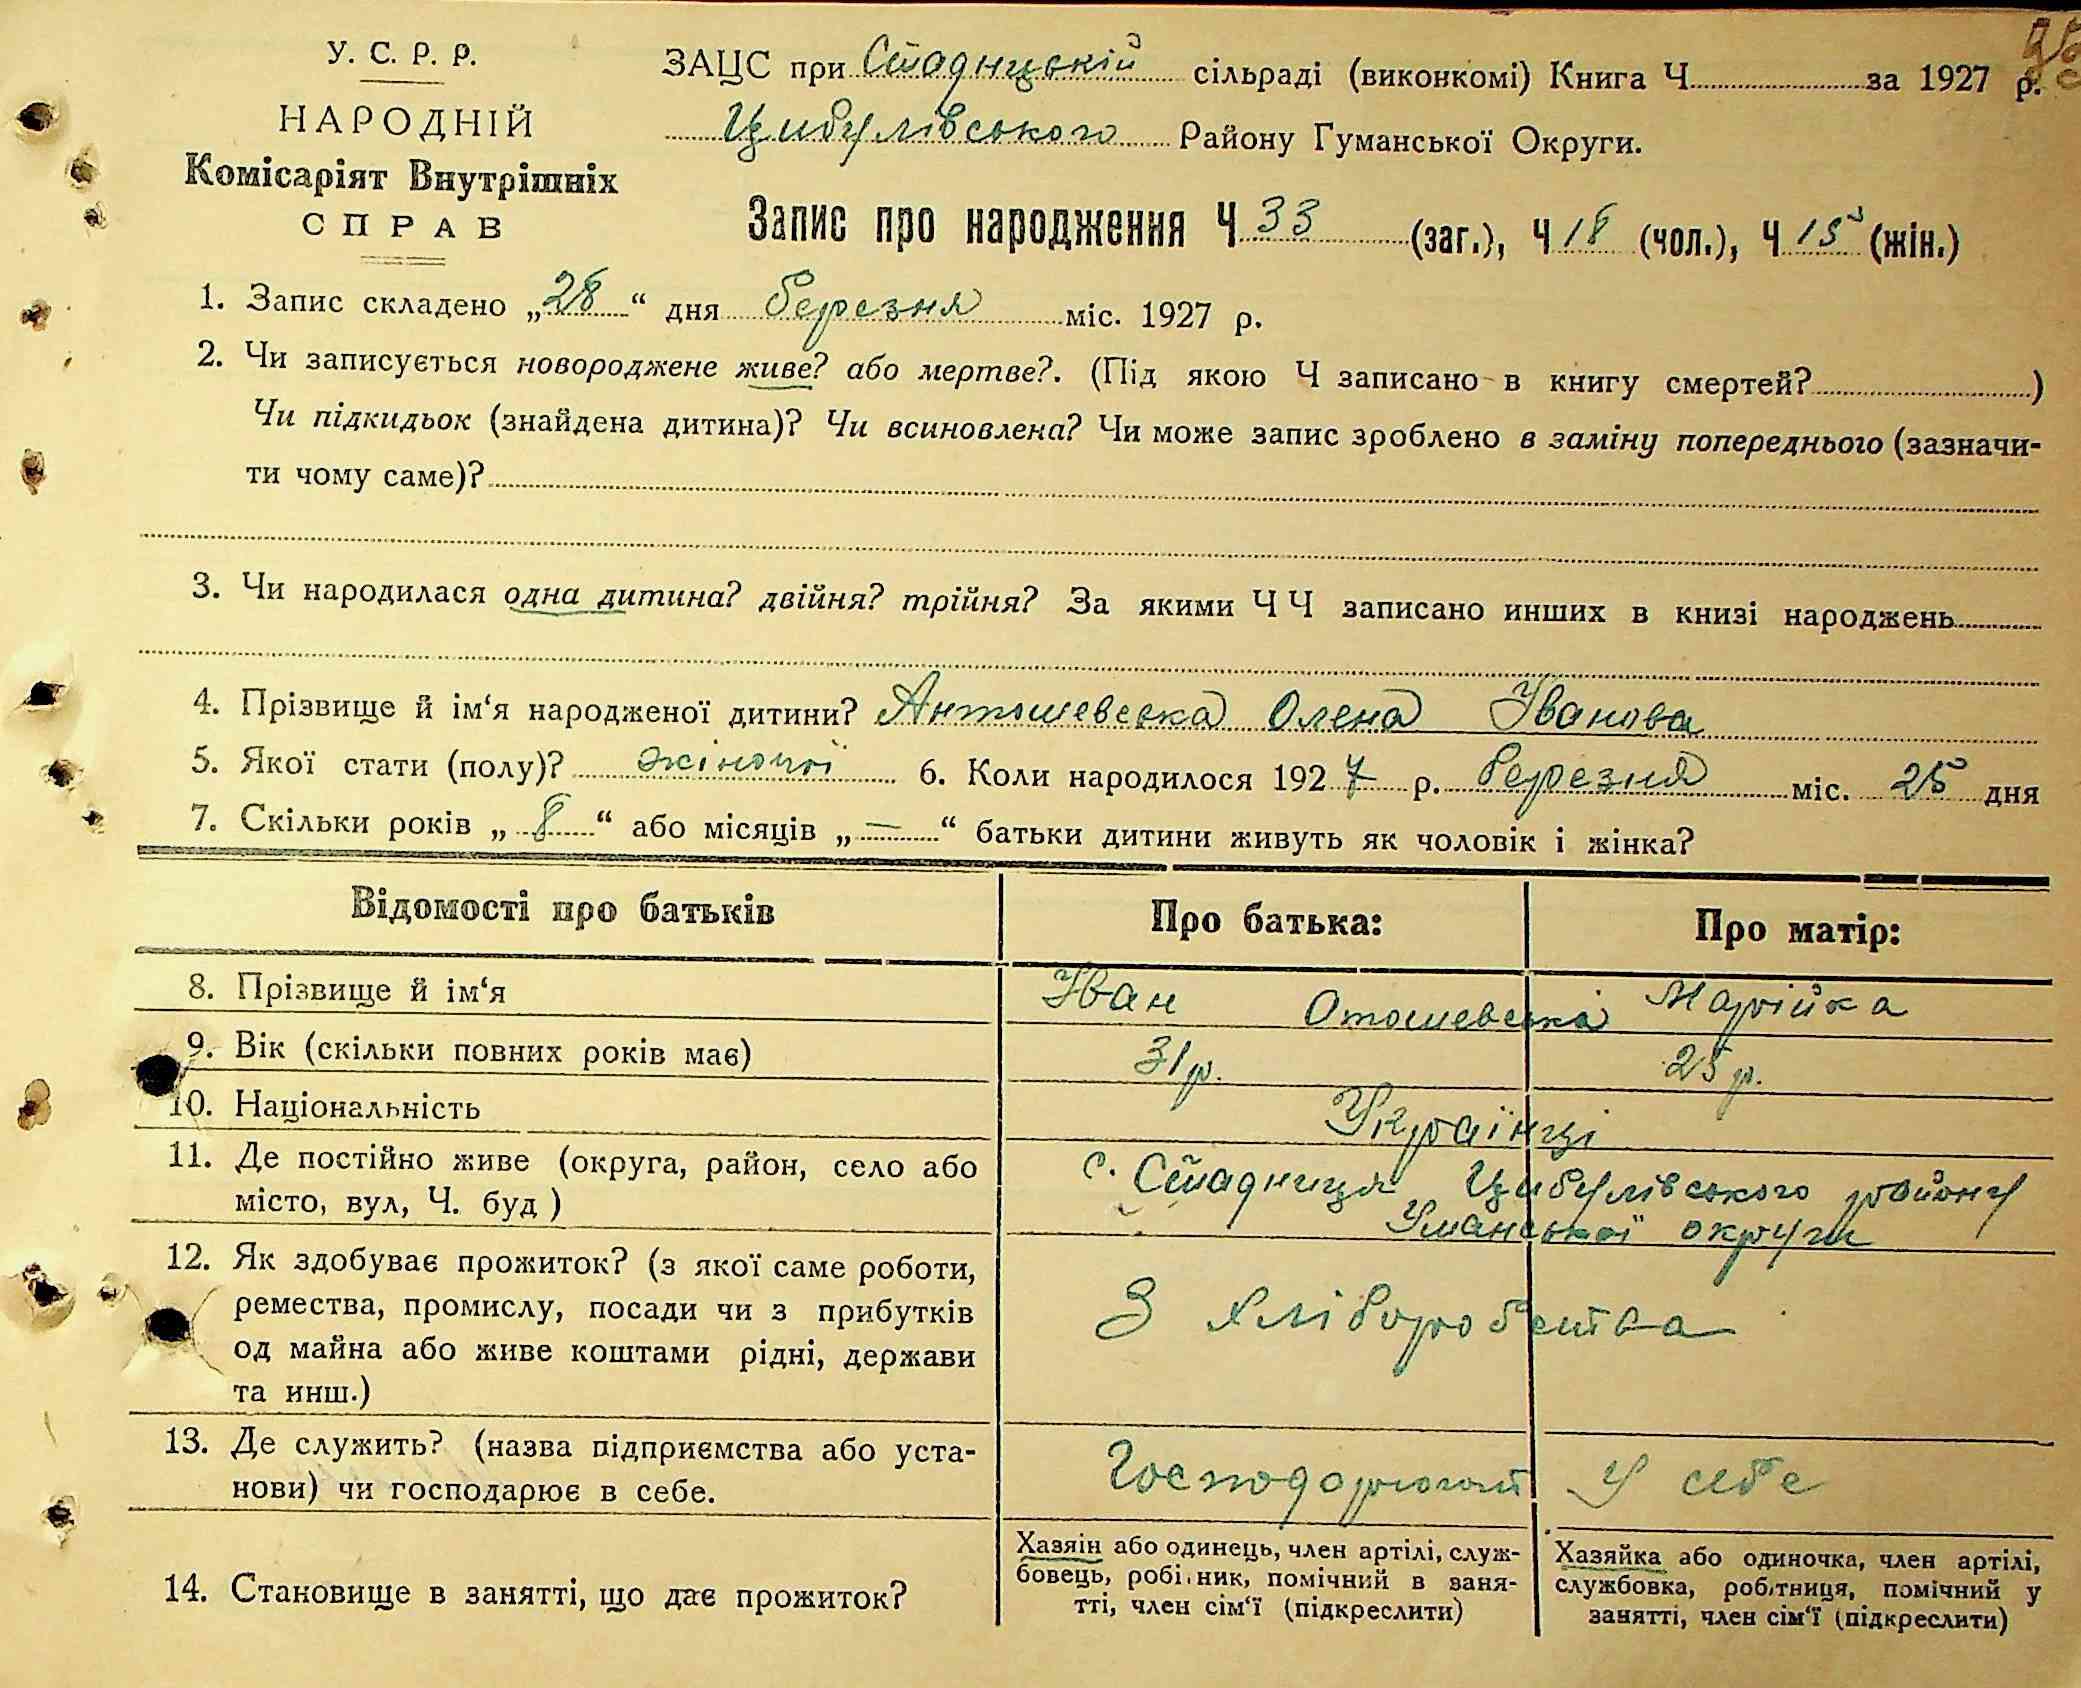 У. С. Р. Р.
НАРОДНІЙ
Комісаріят Внутрішніх
СПРАВ
ЗАЦС при Стадницькій сільраді (виконкомі) Книга Ч. за 1927 р.
Цибулівського Району Гуманської Округи.
Запис про народження Ч 33 (заг.), Ч 18 (чол.), Ч 15 (жін.)
1. Запис складено „28“ дня березня міс. 1927 р.
2. Чи записується новороджене живе? або мертве?. (Під якою Ч записано в книгу смертей? )
Чи підкидьок (знайдена дитина)? Чи всиновлена? Чи може запис зроблено в заміну попереднього (зазначи-
ти чому саме)?
3. Чи народилася одна дитина? двійня? трійня? За якими ЧЧ записано инших в книзі народжень
4. Прізвище й ім‘я народженої дитини? Антошевська Олена Іванова
5. Якої стати (полу)? жіночої 6. Коли народилося 1927 р. березня міс. 25 дня
7. Скільки років „8“ або місяців „—“ батьки дитини живуть як чоловік і жінка?
Відомості про батьків Про батька: Про матір:
8. Прізвище й ім‘я Іван Отошевські Марійка
9. Вік (скільки повних років має) 31 р. 25 р.
10. Національність Українці
11. Де постійно живе (округа, район, село або
місто, вул, Ч. буд )
с. Стадниця Цибулівського району
Уманської округи
12. Як здобуває прожиток? (з якої саме роботи,
ремества, промислу, посади чи з прибутків
од майна або живе коштами рідні, держави
та инш.)
З хліборобства
13. Де служить? (назва підприємства або уста-
нови) чи господарює в себе.
Господорюют У себе
14. Становище в занятті, що дає прожиток?
Хазяїн або одинець, член артілі, служ-
бовець, робітник, помічний в заня-
тті, член сім‘ї (підкреслити)
Хазяйка або одиночка, член артілі,
службовка, робітниця, помічний у
занятті, член сім‘ї (підкреслити)